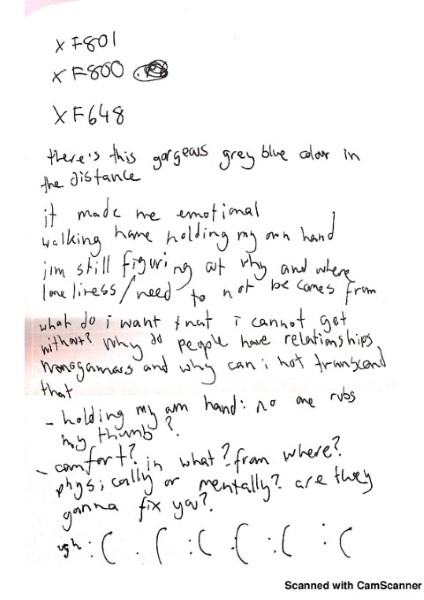 XF801
XF800
XF648
there's this gorgeous grey blue colour in
the distance
it made me emotional
walking home holding my own hand
im still figuring out why and where
loneliness/need to not be comes from
what do i want that i cannot get
without? why do people have relationships,
monogamous and why can i not transcend
that
- holding my own hand: no one rubs
my thumb?
- comfort? in what? from where?
physically or mentally? are they
gonna fix you?
ugh :( :( :( :( :( :(
Scanned with CamScanner